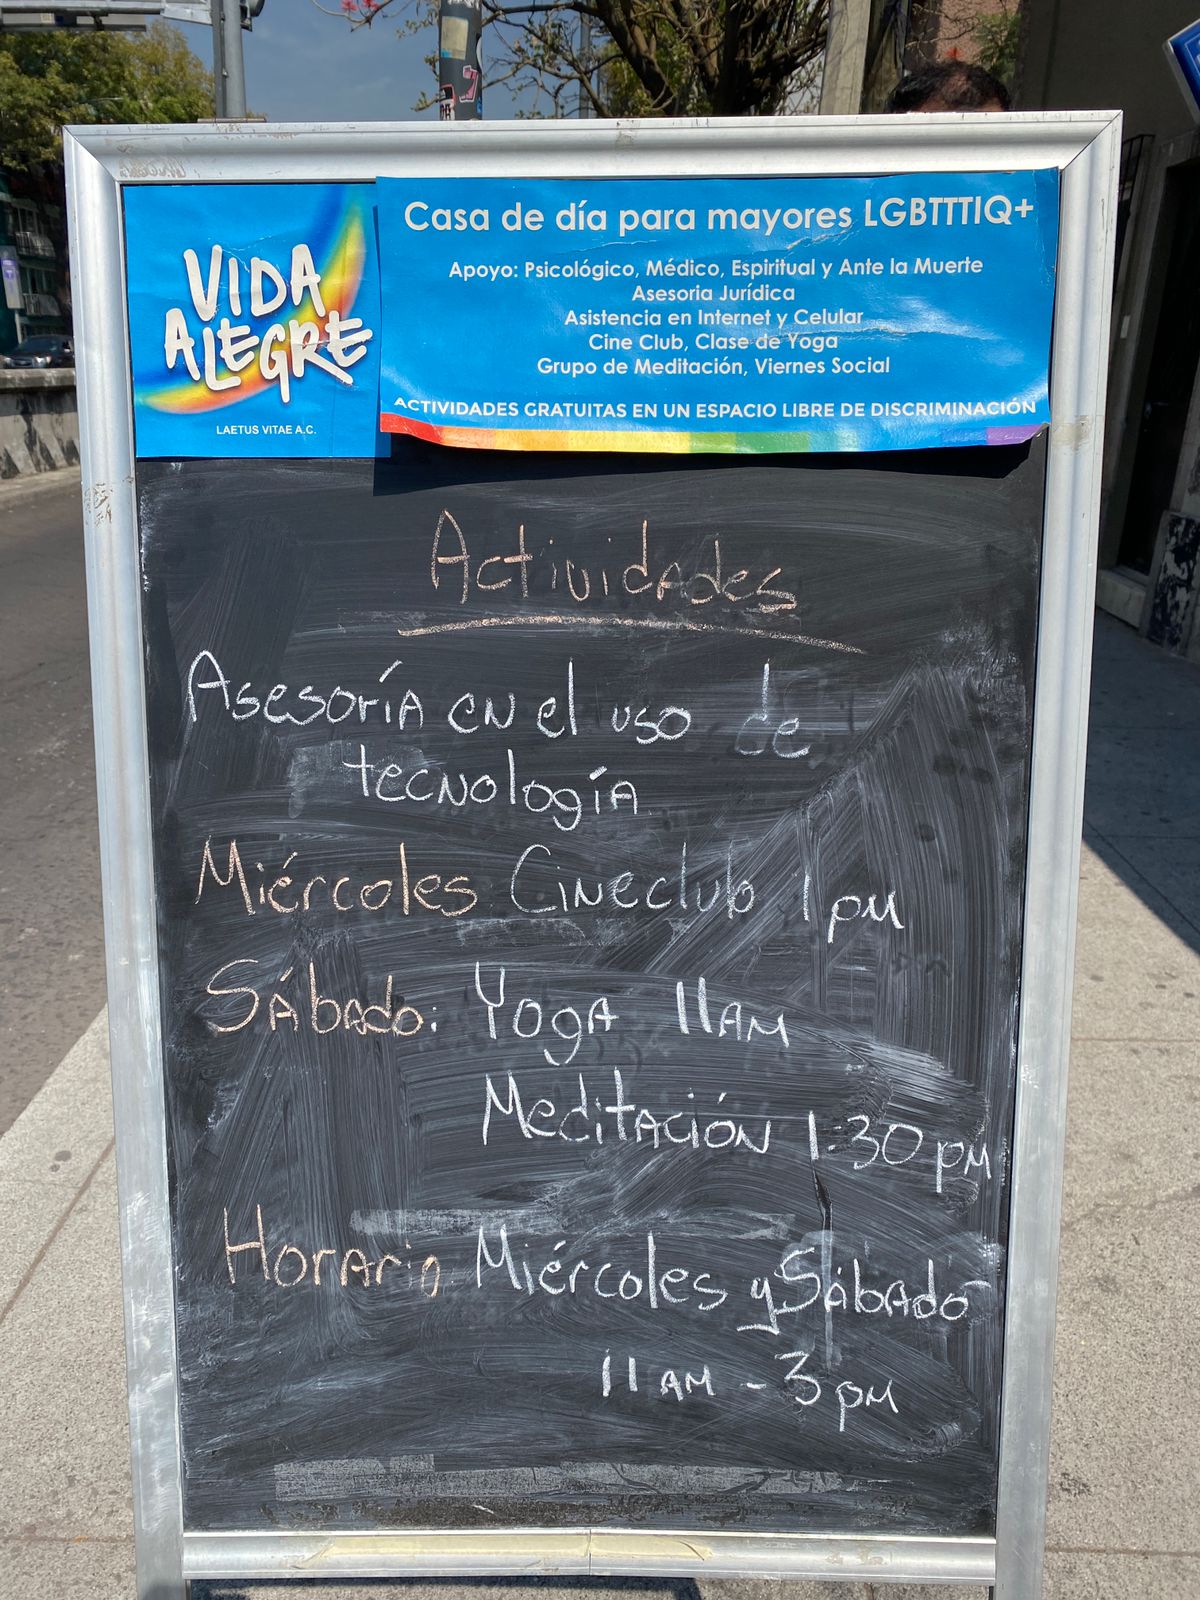 VIDA
ALEGRE
LAETUS VITAE A.C.
Casa de día para mayores LGBTTTIQ+
Apoyo: Psicológico, Médico, Espiritual y Ante la Muerte
Asesoria Jurídica
Asistencia en Internet y Celular
Cine Club, Clase de Yoga
Grupo de Meditación, Viernes Social
ACTIVIDADES GRATUITAS EN UN ESPACIO LIBRE DE DISCRIMINACIÓN
Actividades
Asesoría en el uso de
tecnología
Miércoles Cineclub 1 pm
Sábado: Yoga 11 AM
Meditación 1:30 pm
Horario Miércoles y Sábado
11 AM - 3 pm